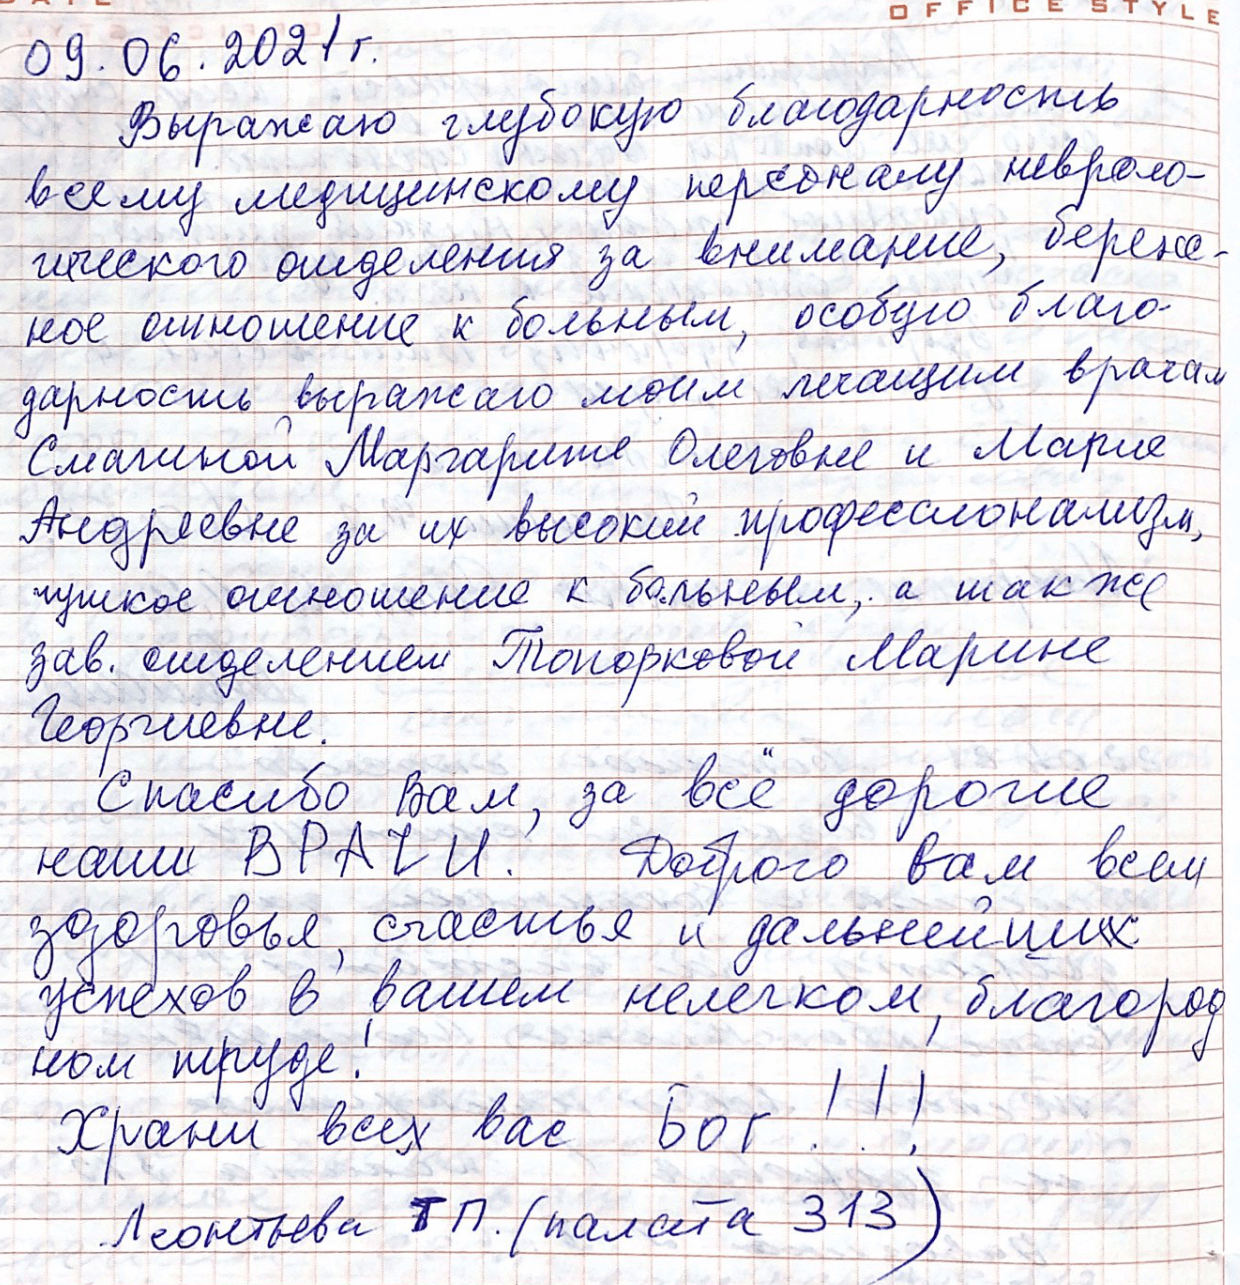 OFFICE STYLE
09.06.2021г.
Выражаю глубокую благодарность
всему медицинскому персоналу невроло-
гического отделения за внимание, береж-
ное отношение к больным, особую благо-
дарность выражаю моим лечащим врачам
Смагиной Маргарите Олеговне и Марие
Андреевне за их высокий профессионализм,
чуткое отношение к больным, а так же
зав. отделением Топорковой Марине
Георгиевне.
Спасибо Вам, за всё дорогие
наши ВРАЧИ. Доброго вам всем
здоровья, счастья и дальнейших
успехов в вашем нелегком, благород
ном труде!
Храни всех вас Бог!!!
Леонтьева Т П. (палата 313)